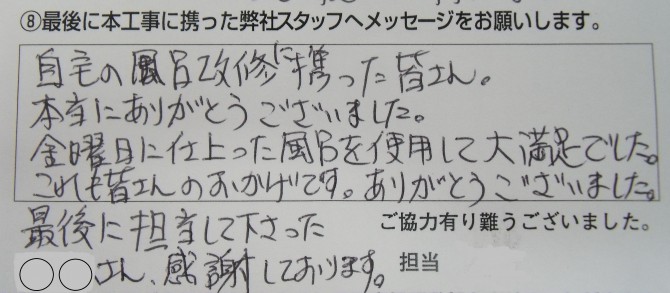 ⑧最後に本工事に携った弊社スタッフへメッセージをお願いします。
自宅の風呂改修に携った皆さん。
本当にありがとうございました。
金曜日に仕上った風呂を使用して大満足でした。
これも皆さんのおかげです。ありがとうございました。
最後に担当して下さった
ご協力有り難うございました。
○○さん、感謝しております。
担当